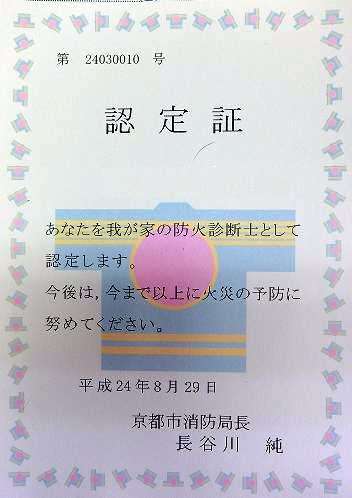 第 24030010 号
認定証
あなたを我が家の防火診断士として
認定します。
今後は,今まで以上に火災の予防に
努めてください。
平成24年8月29日
京都市消防局長
長谷川 純